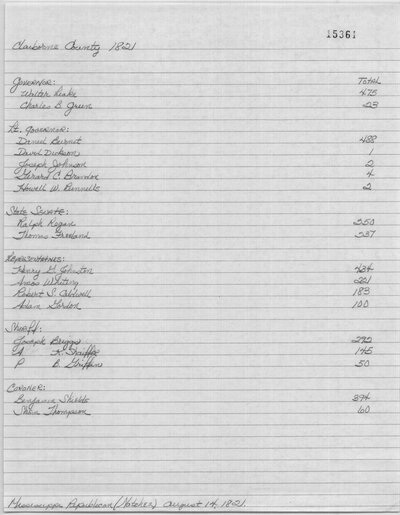 15361
Claiborne County 1821
Governor: TOTAL
Walter Leake 475
Charles B. Green 23
Lt. Governor:
Daniel Burnet 488
David Dickson 1
Joseph Johnson 2
Gerard C. Brandon 4
Howell W. Runnells 2
State Senate:
Ralph Regan 250
Thomas Freeland 237
Representatives:
Henry G. Johnston 434
Amos Whiting 221
Robert S. Caldwell 183
Adam Gordon 100
Sheriff:
Joseph Briggs 292
A K. 145
P B. Griffin 50
Coroner:
Benjamin Shields 394
Thompson 60
Mississippi Republican (Natchez) August 14, 1821.